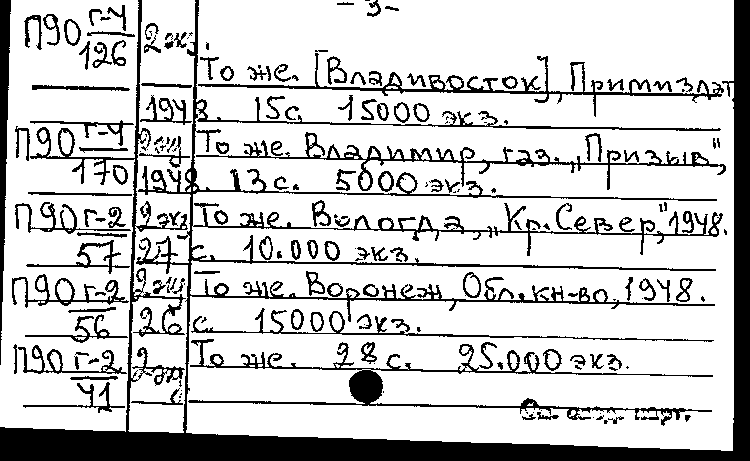 - 3 -
П90 Г-4/126 2 экз.
То же. [Владивосток], Примиздат
1948. 15 с. 15000 экз.
П90 Г-4/170 2 экз То же. Владимир, газ. „Призыв",
1948. 13 с. 5000 экз.
П90 Г-2/57 2 экз То же. Вологда, „Кр. Север," 1948.
27 с. 10.000 экз.
П90 Г-2/56 2 экз То же. Воронеж, Обл. кн-во, 1948.
26 с. 15000 экз.
П90 Г-2/41 2 экз То же. 28 с. 25.000 экз.
См. след. карт.